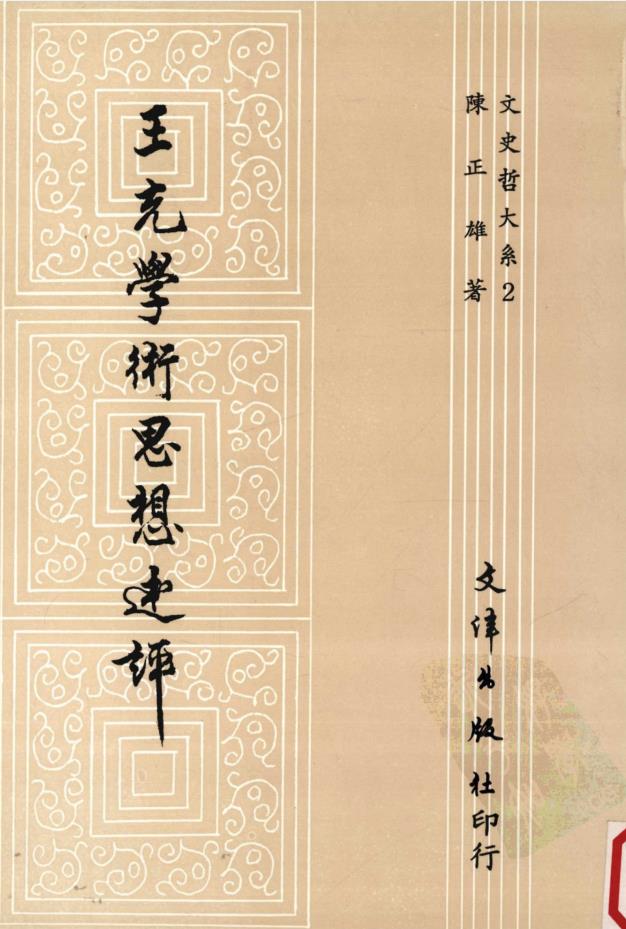 文史哲大系2
陳正雄著
王充學術思想述評
文津出版社印行